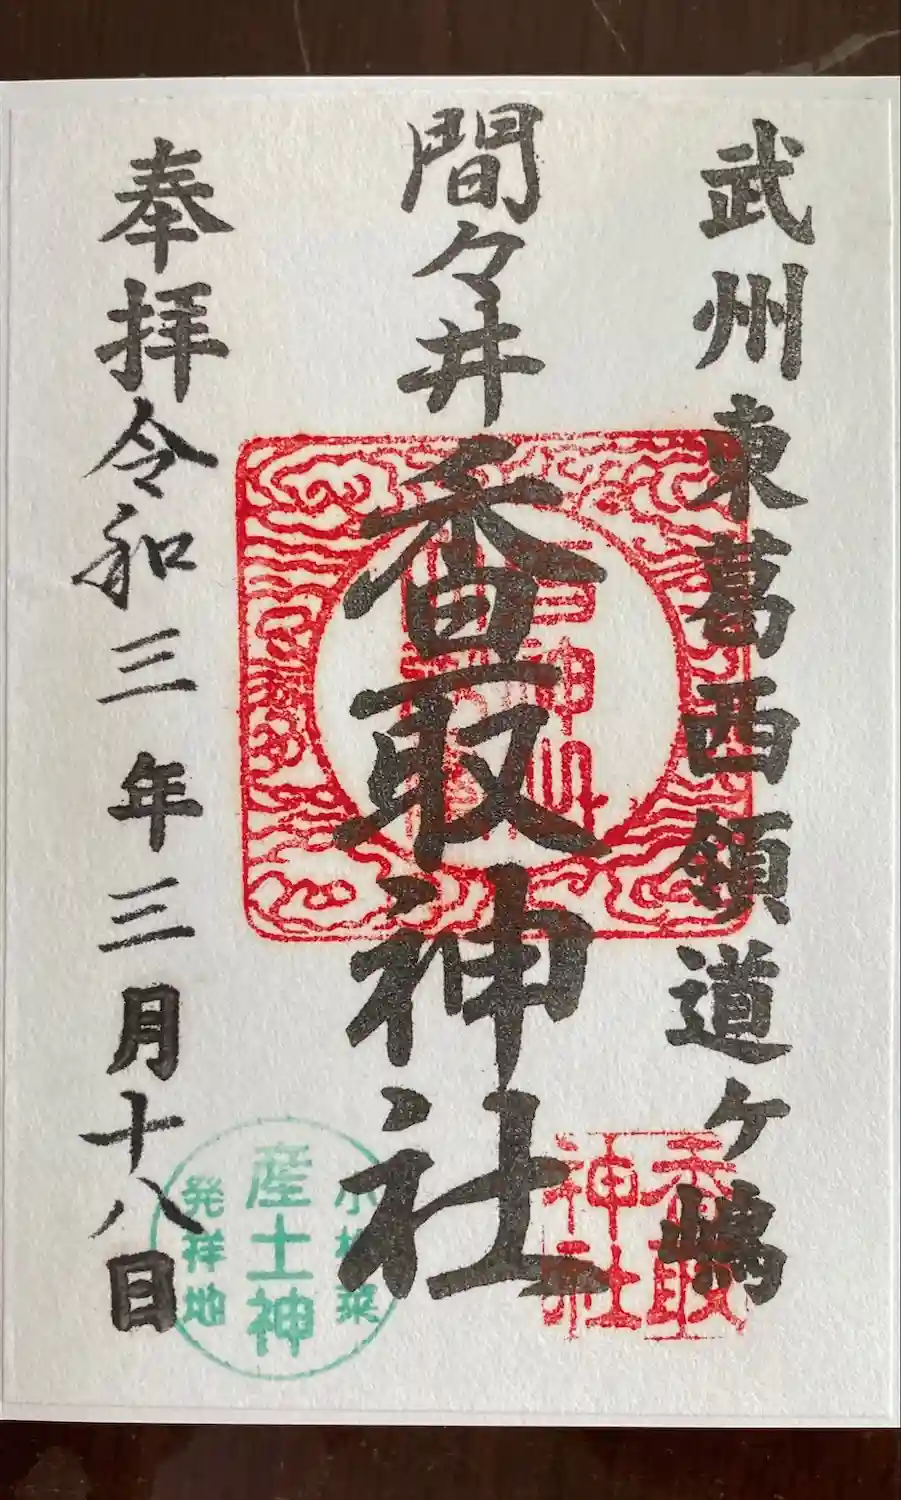 武州東葛西領道ヶ嶋
間々井香取神社
奉拝令和三年三月十八日
香取
神社
小松菜
産土神
発祥地